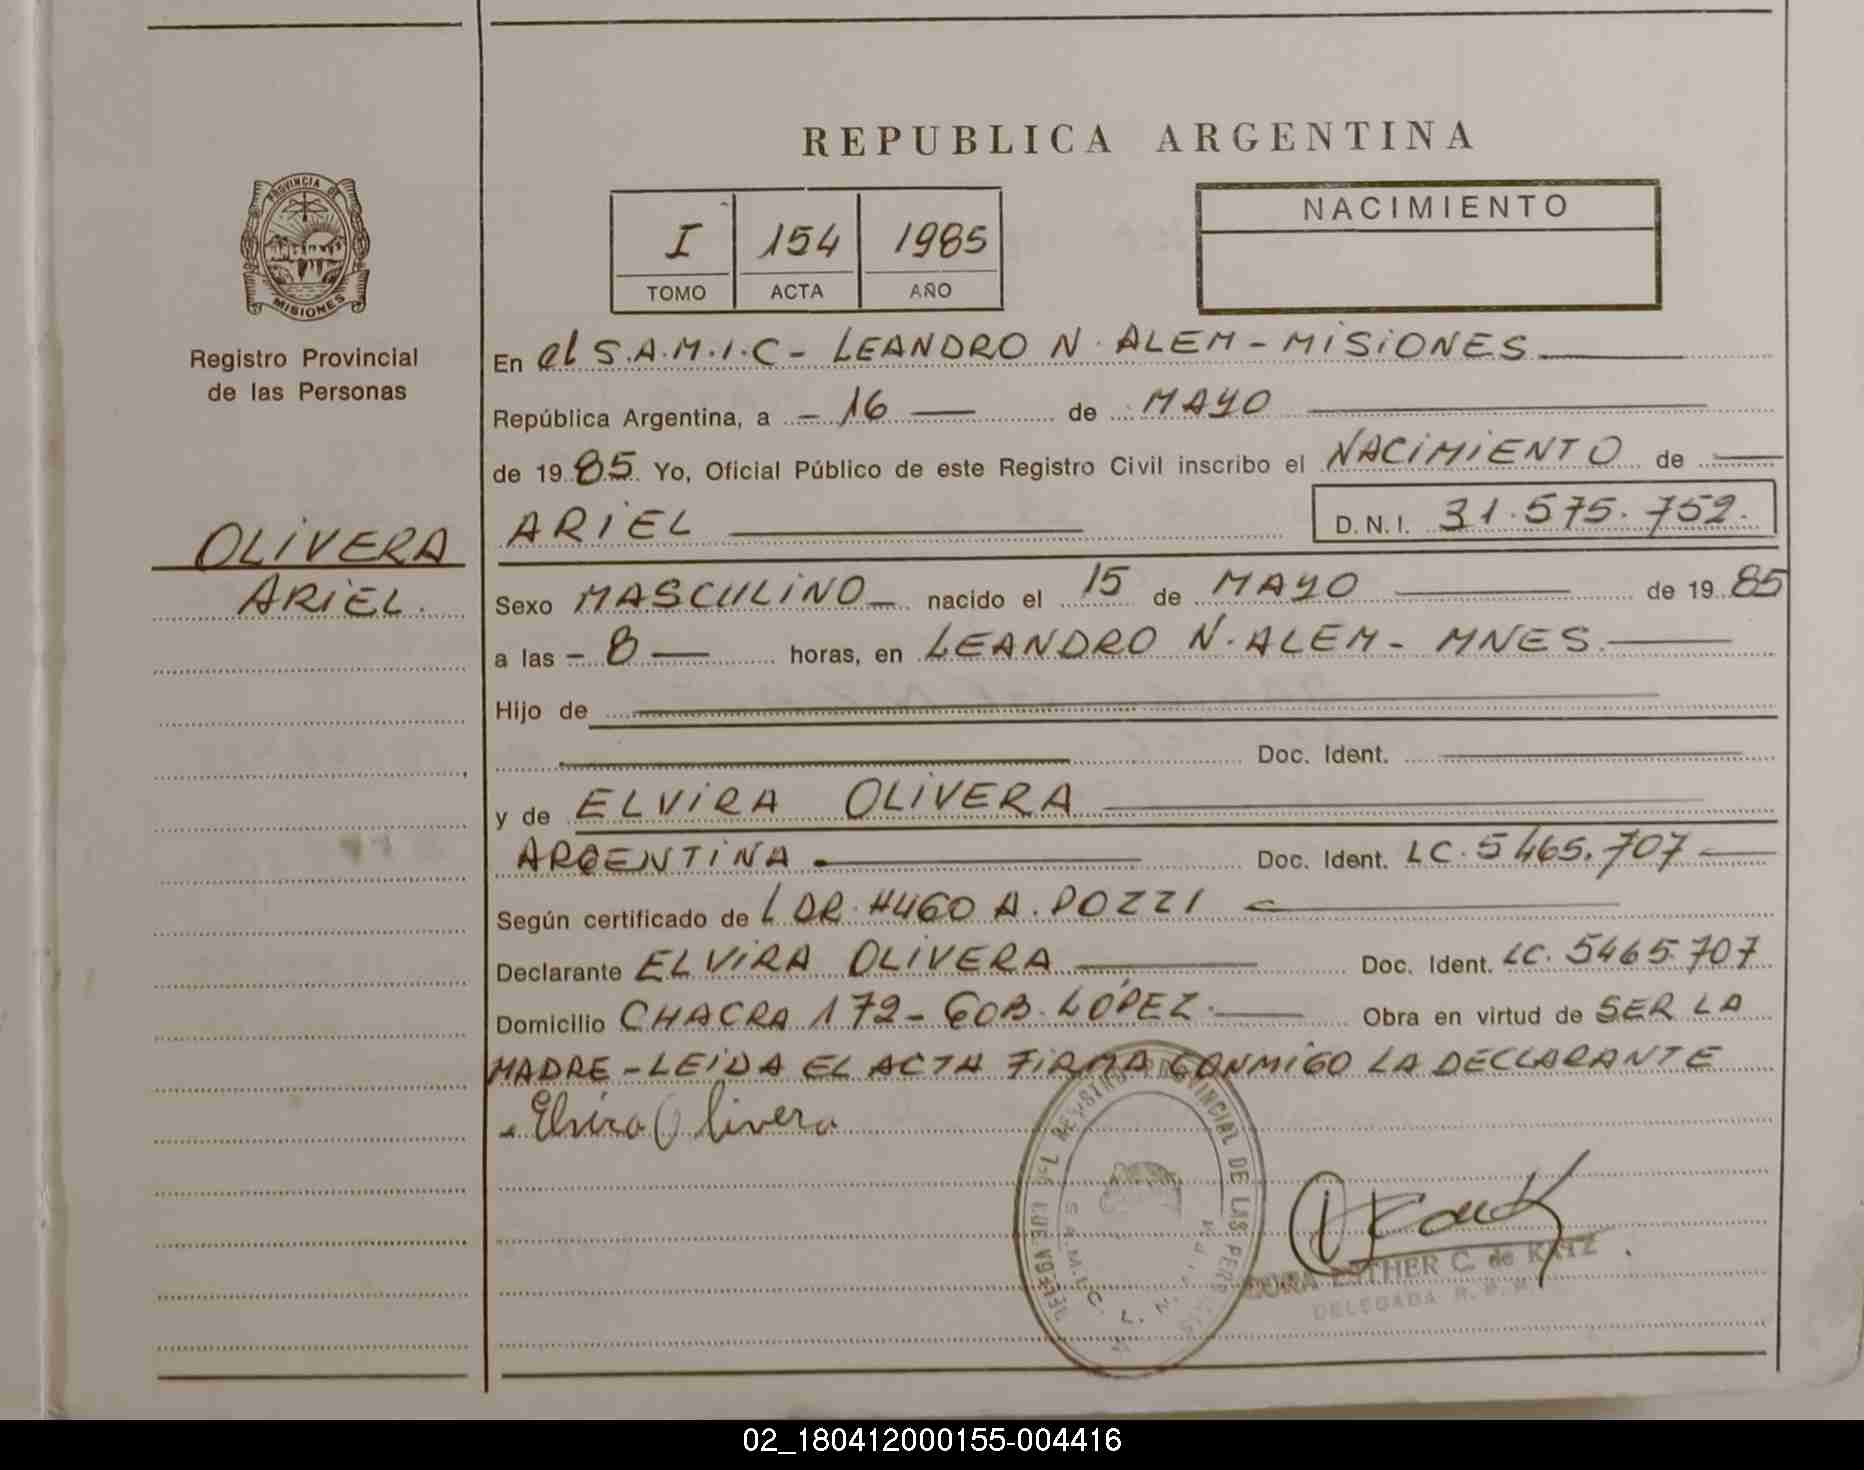 REPUBLICA ARGENTINA
PROVINCIA DE
MISIONES
Registro Provincial
de las Personas
OLIVERA
ARIEL.
I 154 1985
TOMO ACTA AÑO
NACIMIENTO
En el S.A.M.I.C - LEANDRO N. ALEM - MISIONES
República Argentina, a - 16 — de MAYO
de 1985 Yo, Oficial Público de este Registro Civil inscribo el NACIMIENTO de —
ARIEL — D.N.I. 31.575.752.
Sexo MASCULINO - nacido el 15 de MAYO — de 1985
a las - 8 — horas, en LEANDRO N. ALEM - MNES. —
Hijo de —
— Doc. Ident. —
y de ELVIRA OLIVERA —
ARGENTINA — Doc. Ident. LC. 5465.707 —
Según certificado de L DR. HUGO A. POZZI —
Declarante ELVIRA OLIVERA — Doc. Ident. LC. 5465.707
Domicilio CHACRA 172 - GOB. LÓPEZ. — Obra en virtud de SER LA
MADRE - LEIDA EL ACTA FIRMA CONMIGO LA DECLARANTE
Elvira Olivera
REGISTRO PROVINCIAL DE LAS
S.A.M.I.C. L. N.
ESTHER C. de KATZ
DELEGADA R.P.
02_180412000155-004416